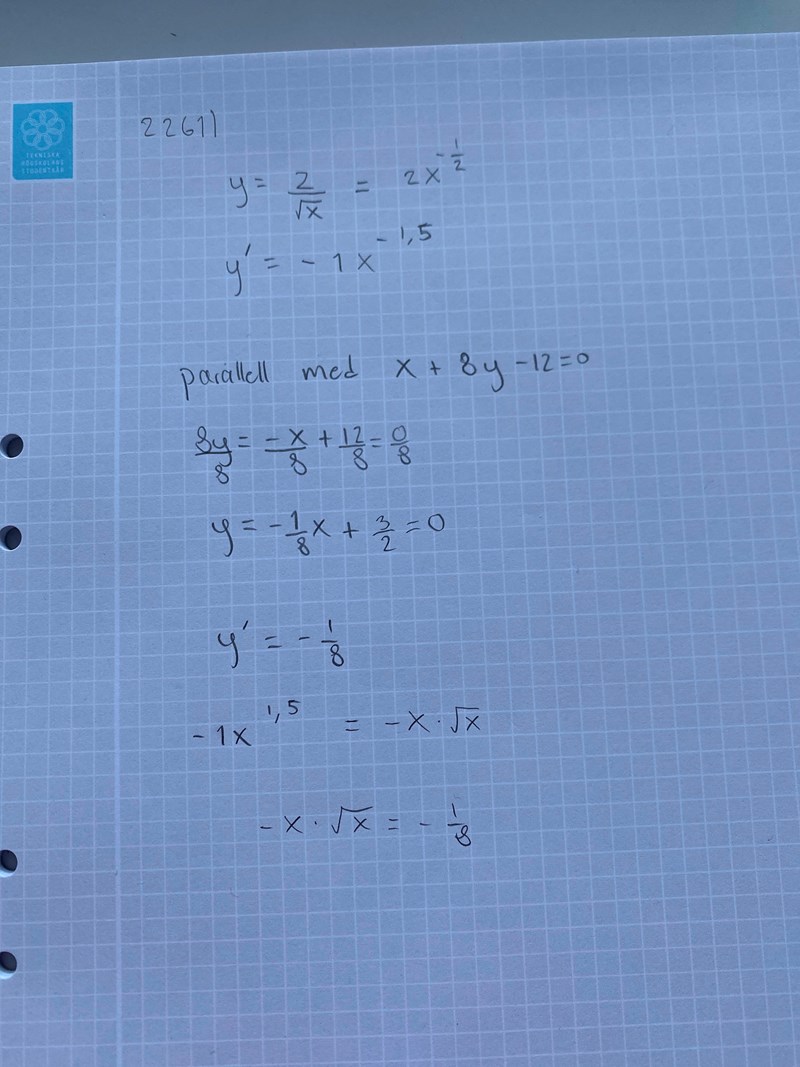 TEKNISKA
HÖGSKOLANS
STUDENTKÅR
2261)
y = 2/√x = 2x^(-1/2)
y' = -1x^(-1,5)
parallell med x + 8y - 12 = 0
8y/8 = -x/8 + 12/8 = 0/8
y = -1/8x + 3/2 = 0
y' = -1/8
-1x^(1,5) = -x · √x
-x · √x = -1/8